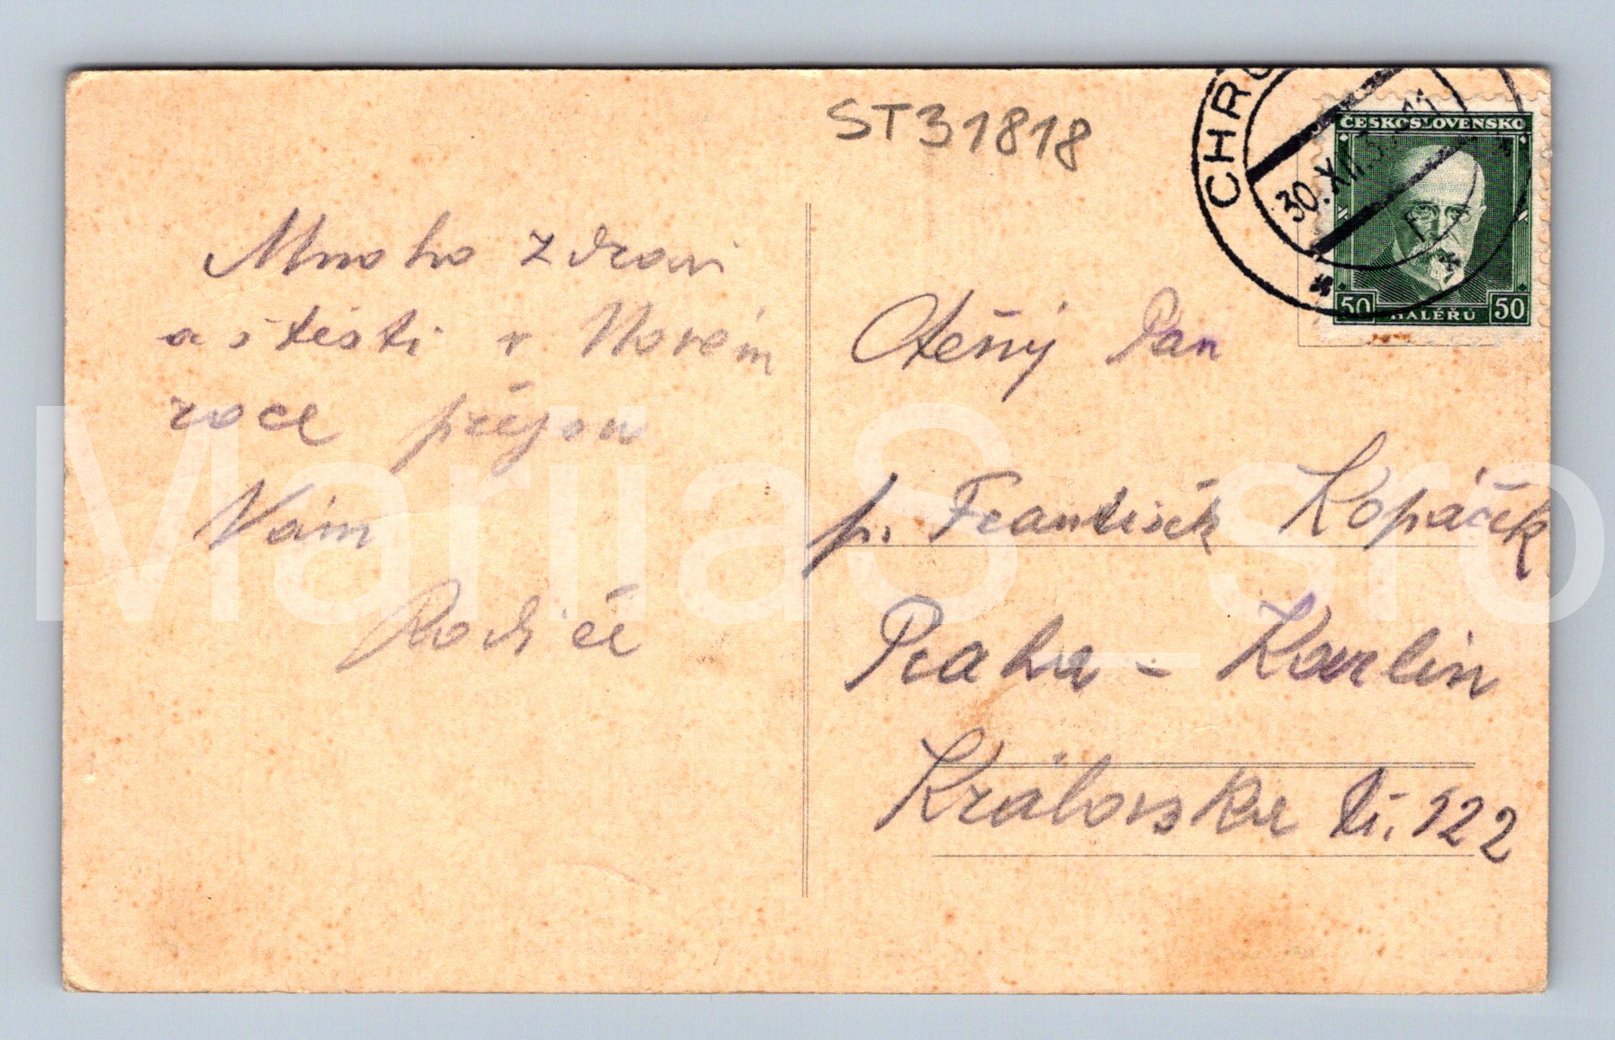 ST31818
CHRU
30.XII.3
11
F
ČESKOSLOVENSKO
50 HALÉŘŮ 50
Mnoho zdraví
a štěstí v Novém
roce přejou
Vám
Rodiče
Ctěný Pan
p. František Kopáček
Praha - Karlin
Královska tř. 122
MariiaS_sro